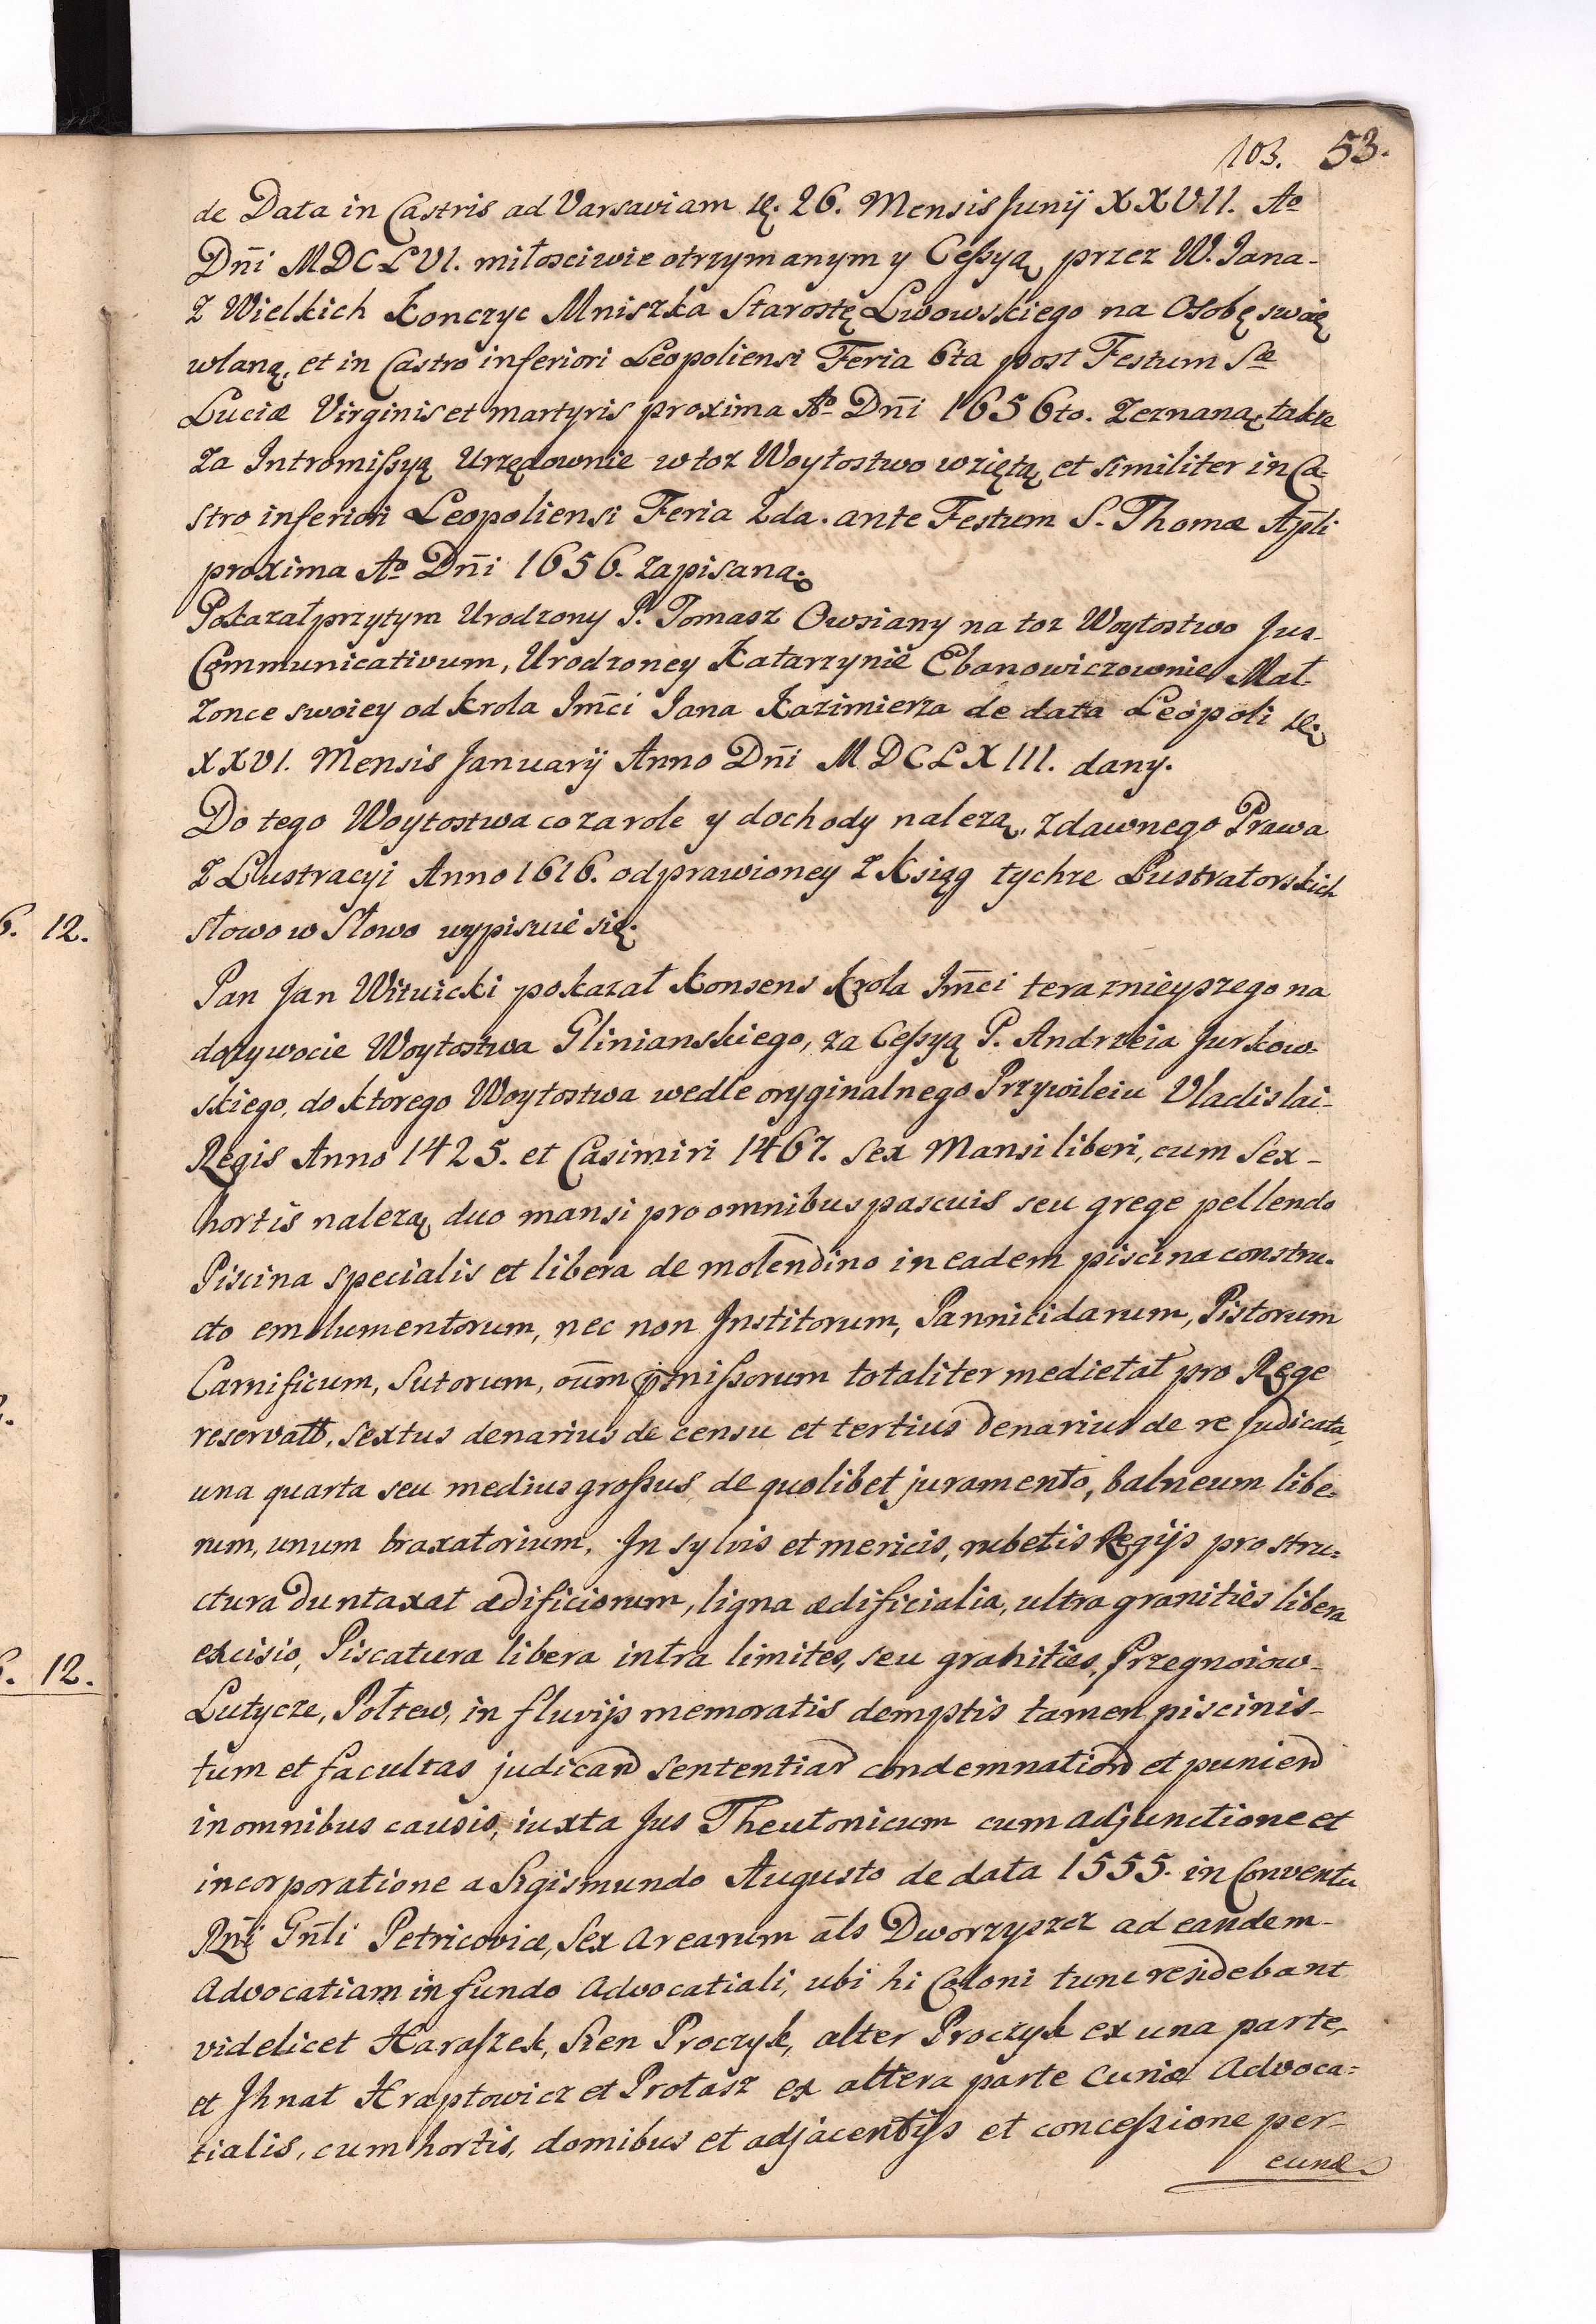 103. 53.
de Data in Castris ad Varsaviam d. 26. Mensis Junij XXVII. Ao
Dn̄i MDCLVI. miłosciwie otrzymanym y Cessyą przez W. Jana-
Z Wielkich Konczyc Mniszka Starostę Lwowskiego na Osobę swoię
wlaną, et in Castro inferiori Leopoliensi Feria 6ta post Festum Sæ
Luciæ Virginis et martyris proxima Ao Dn̄i 1656to. Zeznaną, takze
Za Intromissyą Urzędownie w toz Woytostwo wziętą et similiter in Ca-
stro inferiori Leopoliensi Feria 2da. ante Festum S. Thomæ Ap̄li
proxima Ao Dn̄i 1656. zapisaną.
Pokazał przytym Urodzony P. Tomasz Owsiany na toz Woytostwo Jus-
Communicativum, Urodzoney Katarzynie Ebanowiczownie Mał-
zonce swoiey od Krola Jm̄ci Jana Kazimierza de data Leopoli d.
XXVI. Mensis Januarij Anno Dn̄i MDCLXIII. dany.
Do tego Woytostwa co za role y dochody nalezą, z dawnego Prawa
Z Lustracyi Anno 1616. odprawioney z Ksiąg tychze Lustratorskich
słowo w Słowo wypisuie się.
Pan Jan Witwicki pokazał Konsens Krola Jm̄ci teraznieyszego na
dozywocie Woytostwa Glinianskiego, za Cessyą P. Andrzeia Jurkow-
skiego, do ktorego Woytostwa wedle oryginalnego Przywileiu Vladislai-
Regis Anno 1425. et Casimiri 1467. Sex Mansi liberi, cum Sex-
hortis nalezą, duo mansi pro omnibus pascuis seu grege pellendo
Piscina specialis et libera de molendino in eadem piscina constru-
cto emolumentorum, nec non Institorum, Pannicidarum, Pistorum
Carnificum, Sutorum, oūm p̄missorum totaliter medietat pro Rege
reservatt, sextus denarius de censu et tertius denarius de re judicata,
una quarta seu medius grossus de quolibet juramento, balneum libe=
rum, unum braxatorium. In sylvis et mericis, rubetis Regijs pro stru=
ctura duntaxat ædificiorum, ligna ædificialia, ultra granities libera
excisio, Piscatura libera intra limites, seu granities, Przegnoiow-
Lutycze, Połtew, in fluvijs memoratis demptis tamen piscinis-
tum et facultas judicand sententiand condemnationd et puniend
in omnibus causis, iuxta Jus Theutonicum cum adjunctione et
incorporatione a Sigismundo Augusto de data 1555. in Conventu
Rn̄i Gn̄li Petricoviæ, Sex arearum āls Dworzyszcz ad eandem-
Advocatiam in fundo Advocatiali, ubi hi Coloni tunc residebant
videlicet Haraszek, Sien Proczyk, alter Proczyk ex una parte,
et Jhnat Hraptowicz et Protasz ex altera parte Curiæ Advoca=
tialis, cum hortis, domibus et adjacentijs et concessione per-
cunæ
6. 12.
12.